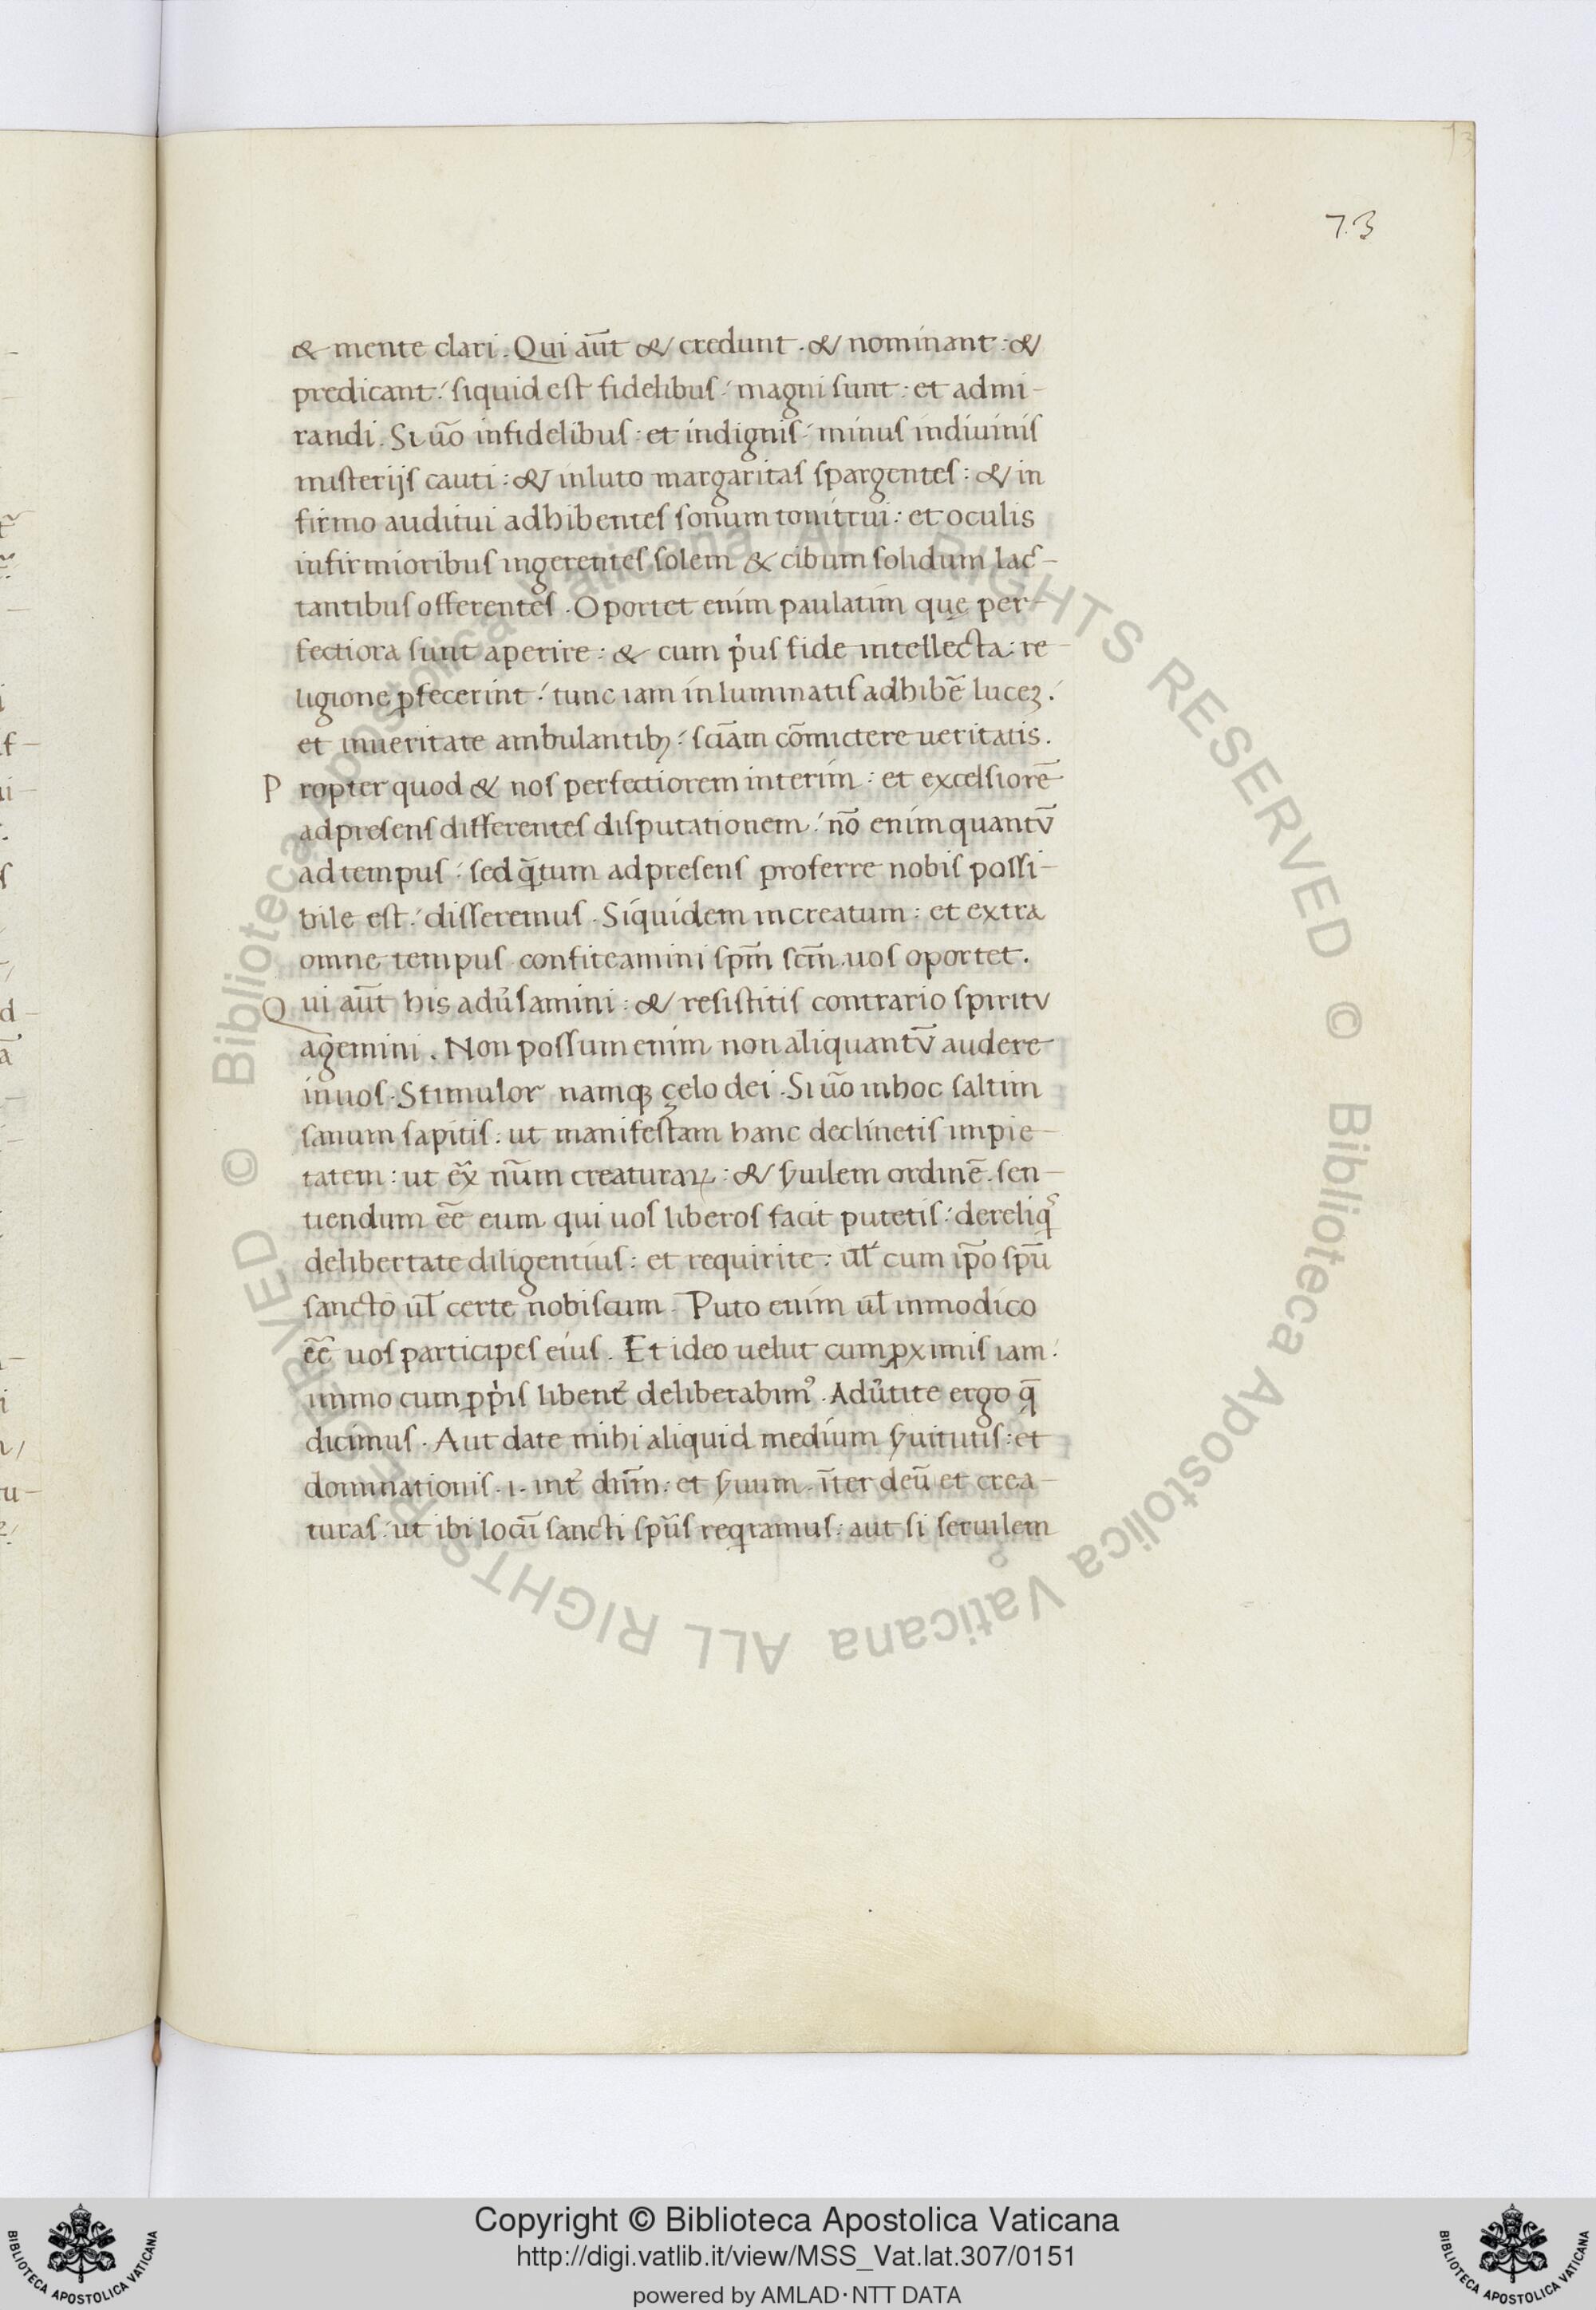 73
& mente clari. Qui aūt & credunt. & nominant: &
predicant: siquid est fidelibus: magni sunt: et admi-
randi. Si ūo infidelibus: et indignis: minus indiuinis
misterijs cauti: & inluto margaritas spargentes: & in
firmo auditui adhibentes sonum tonitrui: et oculis
infirmioribus ingerentes solem & cibum solidum lac-
tantibus offerentes. Oportet enim paulatim quę per-
fectiora sunt aperire: & cum p̓us fide intellecta: re-
ligione ꝓfecerint: tunc iam inluminatis adhibē luceʒ.
et inueritate ambulantibꝫ: scīam cōmictere ueritatis.
Propter quod & nos perfectiorem interim: et excelsiorē
adpresens differentes disputationem: nō enim quantū
ad tempus: sed q̄tum adpresens proferre nobis possi-
bile est: disseremus. Siquidem increatum: et extra
omne tempus confiteamini sp̄m sc̄m uos oportet.
Qui aūt his adu͛samini: & resistitis contrario spiritu
agemini. Non possum enim non aliquantū audere
inuos. Stimulor namqꝫ çelo dei. Si ūo inhoc saltim
sanum sapitis: ut manifestam hanc declinetis impie-
tatem: ut ex̄ nūm creaturaꝝ: & s͛uilem ordinē sen-
tiendum eē eum qui uos liberos facit putetis: dereliq̓
delibertate diligentius: et requirite: ul̄ cum ip̄o sp̄u
sancto ul̄ certe nobiscum. Puto enim ul̄ inmodico
eē uos participes eius. Et ideo uelut cum ꝓximis iam:
immo cum ꝓp̓is libent͛ deliberabimꝰ. Adu͛tite ergo q̄
dicimus. Aut date mihi aliquid medium s͛uitutis: et
dominationis. i. int͛ dn̄m: et s͛uum. īter deū et crea-
turas: ut ibi locū sancti sp̄us reqramus: aut si seruilem
© Biblioteca Apostolica Vaticana ALL RIGHTS RESERVED
© Biblioteca Apostolica Vaticana ALL RIGHTS RESERVED
Copyright © Biblioteca Apostolica Vaticana
http://digi.vatlib.it/view/MSS_Vat.lat.307/0151
powered by AMLAD·NTT DATA
BIBLIOTECA APOSTOLICA VATICANA
BIBLIOTECA APOSTOLICA VATICANA